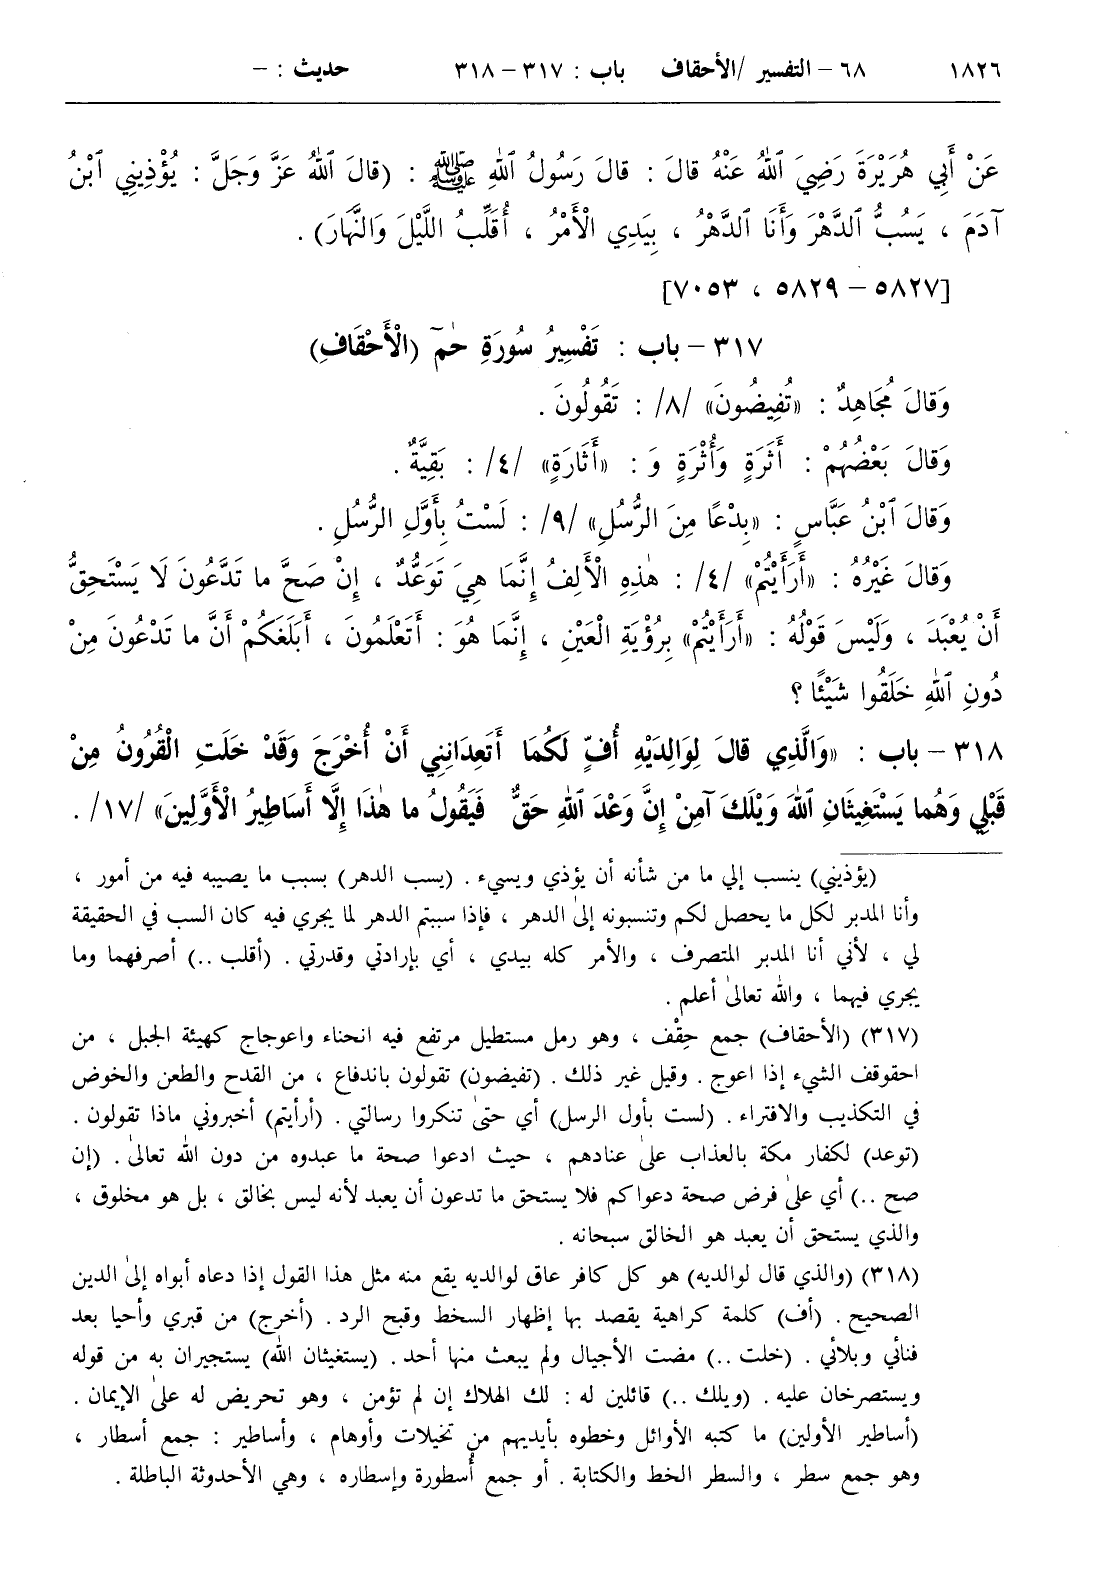 ١٨٢٦ ٦٨ – التفسير /الأحقاف باب : ٣١٧ – ٣١٨ حديث : –
عَنْ أَبِي هُرَيْرَةَ رَضِيَ ٱللهُ عَنْهُ قالَ : قالَ رَسُولُ ٱللهِ ﷺ : (قالَ ٱللهُ عَزَّ وَجَلَّ : يُؤْذِينِي ٱبْنُ
آدَمَ ، يَسُبُّ ٱلدَّهْرَ وَأَنَا ٱلدَّهْرُ ، بِيَدِي الْأَمْرُ ، أُقَلِّبُ اللَّيْلَ وَالنَّهَارَ) .
[٥٨٢٧ – ٥٨٢٩ ، ٧٠٥٣]
٣١٧ – باب : تَفْسِيرُ سُورَةِ حٰمٓ (الْأَحْقَافِ)
وَقالَ مُجَاهِدٌ : «تُفِيضُونَ» /٨/ : تَقُولُونَ .
وَقالَ بَعْضُهُمْ : أَثَرَةٍ وَأُثْرَةٍ وَ : «أَثَارَةٍ» /٤/ : بَقِيَّةٌ .
وَقالَ ٱبْنُ عَبَّاسٍ : «بِدْعًا مِنَ الرُّسُلِ» /٩/ : لَسْتُ بِأَوَّلِ الرُّسُلِ .
وَقالَ غَيْرُهُ : «أَرَأَيْتُمْ» /٤/ : هٰذِهِ الْأَلِفُ إِنَّمَا هِيَ تَوَعُّدٌ ، إِنْ صَحَّ ما تَدَّعُونَ لَا يَسْتَحِقُّ
أَنْ يُعْبَدَ ، وَلَيْسَ قَوْلُهُ : «أَرَأَيْتُمْ» بِرُؤْيَةِ الْعَيْنِ ، إِنَّمَا هُوَ : أَتَعْلَمُونَ ، أَبَلَغَكُمْ أَنَّ ما تَدْعُونَ مِنْ
دُونِ ٱللهِ خَلَقُوا شَيْئًا ؟
٣١٨ – باب : «وَالَّذِي قالَ لِوَالِدَيْهِ أُفٍّ لَكُمَا أَتَعِدَانِنِي أَنْ أُخْرَجَ وَقَدْ خَلَتِ الْقُرُونُ مِنْ
قَبْلِي وَهُما يَسْتَغِيثَانِ ٱللهَ وَيْلَكَ آمِنْ إِنَّ وَعْدَ ٱللهِ حَقٌّ فَيَقُولُ ما هٰذَا إِلَّا أَسَاطِيرُ الْأَوَّلِينَ» /١٧/ .
(يؤذيني) ينسب إلي ما من شأنه أن يؤذي ويسيء . (يسب الدهر) بسبب ما يصيبه فيه من أمور ،
وأنا المدبر لكل ما يحصل لكم وتنسبونه إلى الدهر ، فإذا سببتم الدهر لما يجري فيه كان السب في الحقيقة
لي ، لأني أنا المدبر المتصرف ، والأمر كله بيدي ، أي بإرادتي وقدرتي . (أقلب ..) أصرفهما وما
يجري فيهما ، والله تعالى أعلم .
(٣١٧) (الأحقاف) جمع حِقْف ، وهو رمل مستطيل مرتفع فيه انحناء واعوجاج كهيئة الجبل ، من
احقوقف الشيء إذا اعوج . وقيل غير ذلك . (تفيضون) تقولون باندفاع ، من القدح والطعن والخوض
في التكذيب والافتراء . (لست بأول الرسل) أي حتى تنكروا رسالتي . (أرأيتم) أخبروني ماذا تقولون .
(توعد) لكفار مكة بالعذاب على عنادهم ، حيث ادعوا صحة ما عبدوه من دون الله تعالى . (إن
صح ..) أي على فرض صحة دعواكم فلا يستحق ما تدعون أن يعبد لأنه ليس بخالق ، بل هو مخلوق ،
والذي يستحق أن يعبد هو الخالق سبحانه .
(٣١٨) (والذي قال لوالديه) هو كل كافر عاق لوالديه يقع منه مثل هذا القول إذا دعاه أبواه إلى الدين
الصحيح . (أف) كلمة كراهية يقصد بها إظهار السخط وقبح الرد . (أخرج) من قبري وأحيا بعد
فنائي وبلائي . (خلت ..) مضت الأجيال ولم يبعث منها أحد . (يستغيثان الله) يستجيران به من قوله
ويستصرخان عليه . (ويلك ..) قائلين له : لك الهلاك إن لم تؤمن ، وهو تحريض له على الإيمان .
(أساطير الأولين) ما كتبه الأوائل وخطوه بأيديهم من تخيلات وأوهام ، وأساطير : جمع أسطار ،
وهو جمع سطر ، والسطر الخط والكتابة . أو جمع أُسطورة وإسطاره ، وهي الأحدوثة الباطلة .